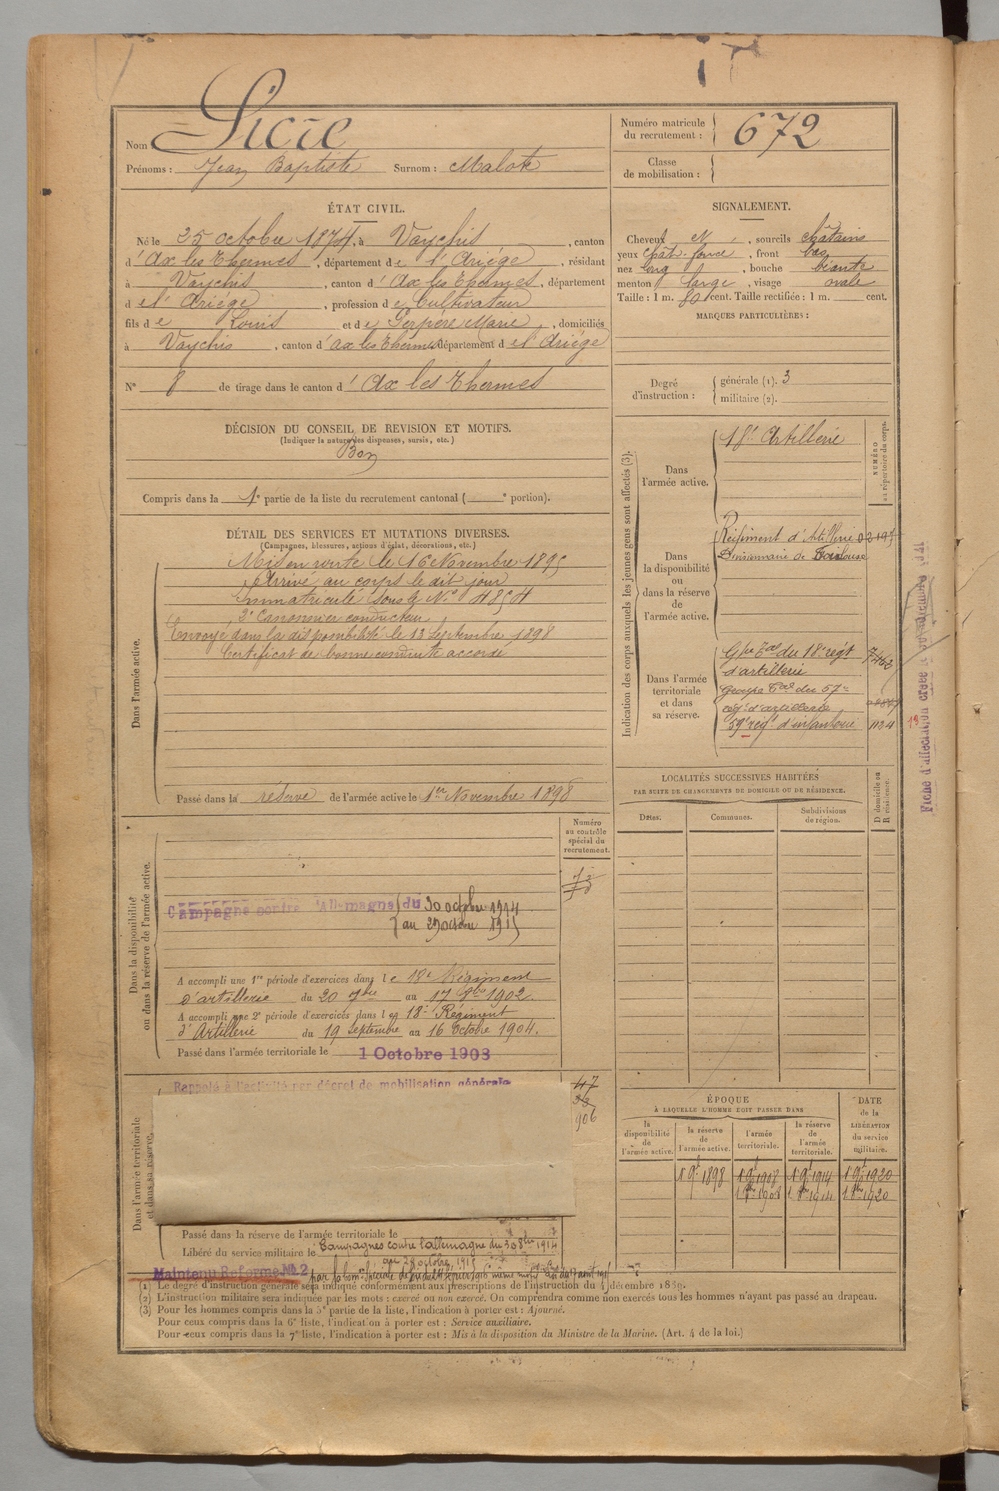 Nom Sicre
Prénoms : Jean Baptiste Surnom : Malote
Numéro matricule du recrutement : 672
Classe de mobilisation :
ÉTAT CIVIL.
Né le 25 octobre 1874, à Vaychis, canton
d'Ax les Thermes, département de l'Ariège, résidant
à Vaychis, canton d'Ax les Thermes, département
de l'Ariège, profession de Cultivateur
fils de Louis et de Serpère Marie, domiciliés
à Vaychis, canton d'ax les thermes département de l'Ariège
N° 8 de tirage dans le canton d'Ax les Thermes
SIGNALEMENT.
Cheveux N, sourcils châtains
yeux chât. foncé, front bas
nez long, bouche
menton large, visage ovale
Taille : 1 m. 80 cent. Taille rectifiée : 1 m. cent.
MARQUES PARTICULIÈRES :
Degré d'instruction : générale (1). 3
militaire (2).
DÉCISION DU CONSEIL DE REVISION ET MOTIFS.
(Indiquer la nature des dispenses, sursis, etc.)
Bon
Compris dans la 1e partie de la liste du recrutement cantonal ( e portion).
DÉTAIL DES SERVICES ET MUTATIONS DIVERSES.
(Campagnes, blessures, actions d'éclat, décorations, etc.)
Dans l'armée active.
Mis en route le 16 Novembre 1895
Arrivé au corps le dit jour
Immatriculé sous le N° 4854
2e Canonnier conducteur
Envoyé dans la disponibilité le 13 Septembre 1898
Certificat de bonne conduite accordé
Passé dans la réserve de l'armée active le 1er Novembre 1898
Indication des corps auxquels les jeunes gens sont affectés (3).
NUMÉRO au répertoire du corps.
Dans l'armée active.
18e Artillerie
Dans la disponibilité ou dans la réserve de l'armée active.
Régiment d'Artillerie
Divisionnaire de Toulouse
Dans l'armée territoriale et dans sa réserve.
Gpe Tal du 18e régt
d'artillerie
Groupe Tal du 57e
régt d'artillerie
59e régt d'infanterie 1134
LOCALITÉS SUCCESSIVES HABITÉES
PAR SUITE DE CHANGEMENTS DE DOMICILE OU DE RÉSIDENCE.
Dates. Communes. Subdivisions de région. D domicile ou R résidence.
Numéro au contrôle spécial du recrutement.
Dans la disponibilité ou dans la réserve de l'armée active.
Campagne contre l'Allemagne du 30 octobre 1914
au 29 octobre 1915
A accompli une 1re période d'exercices dans le 18e Régiment
d'artillerie du 20 7bre au 17 8bre 1902.
A accompli une 2e période d'exercices dans le 18e Régiment
d'Artillerie du 19 Septembre au 16 Octobre 1904.
Passé dans l'armée territoriale le 1 Octobre 1908
Dans l'armée territoriale et dans sa réserve.
Rappelé à l'activité par décret de mobilisation générale
47
33
906
Passé dans la réserve de l'armée territoriale le
Libéré du service militaire le
Campagnes contre l'allemagne du 30 8bre 1914
au 28 octobre 1915
Maintenu Réforme N° 2
ÉPOQUE
À LAQUELLE L'HOMME DOIT PASSER DANS
DATE de la LIBÉRATION du service militaire.
la disponibilité de l'armée active. la réserve de l'armée active. l'armée territoriale. la réserve de l'armée territoriale.
1 9e 1898 1 9e 1908 1 9e 1914 1 9e 1920
1 8bre 1908 1 8bre 1914 1 8bre 1920
(1) Le degré d'instruction générale sera indiqué conformément aux prescriptions de l'Instruction du 4 décembre 1889.
(2) L'instruction militaire sera indiquée par les mots : exercé ou non exercé. On comprendra comme non exercés tous les hommes n'ayant pas passé au drapeau.
(3) Pour les hommes compris dans la 5e partie de la liste, l'indication à porter est : Ajourné.
Pour ceux compris dans la 6e liste, l'indication à porter est : Service auxiliaire.
Pour ceux compris dans la 7e liste, l'indication à porter est : Mis à la disposition du Ministre de la Marine. (Art. 4 de la loi.)